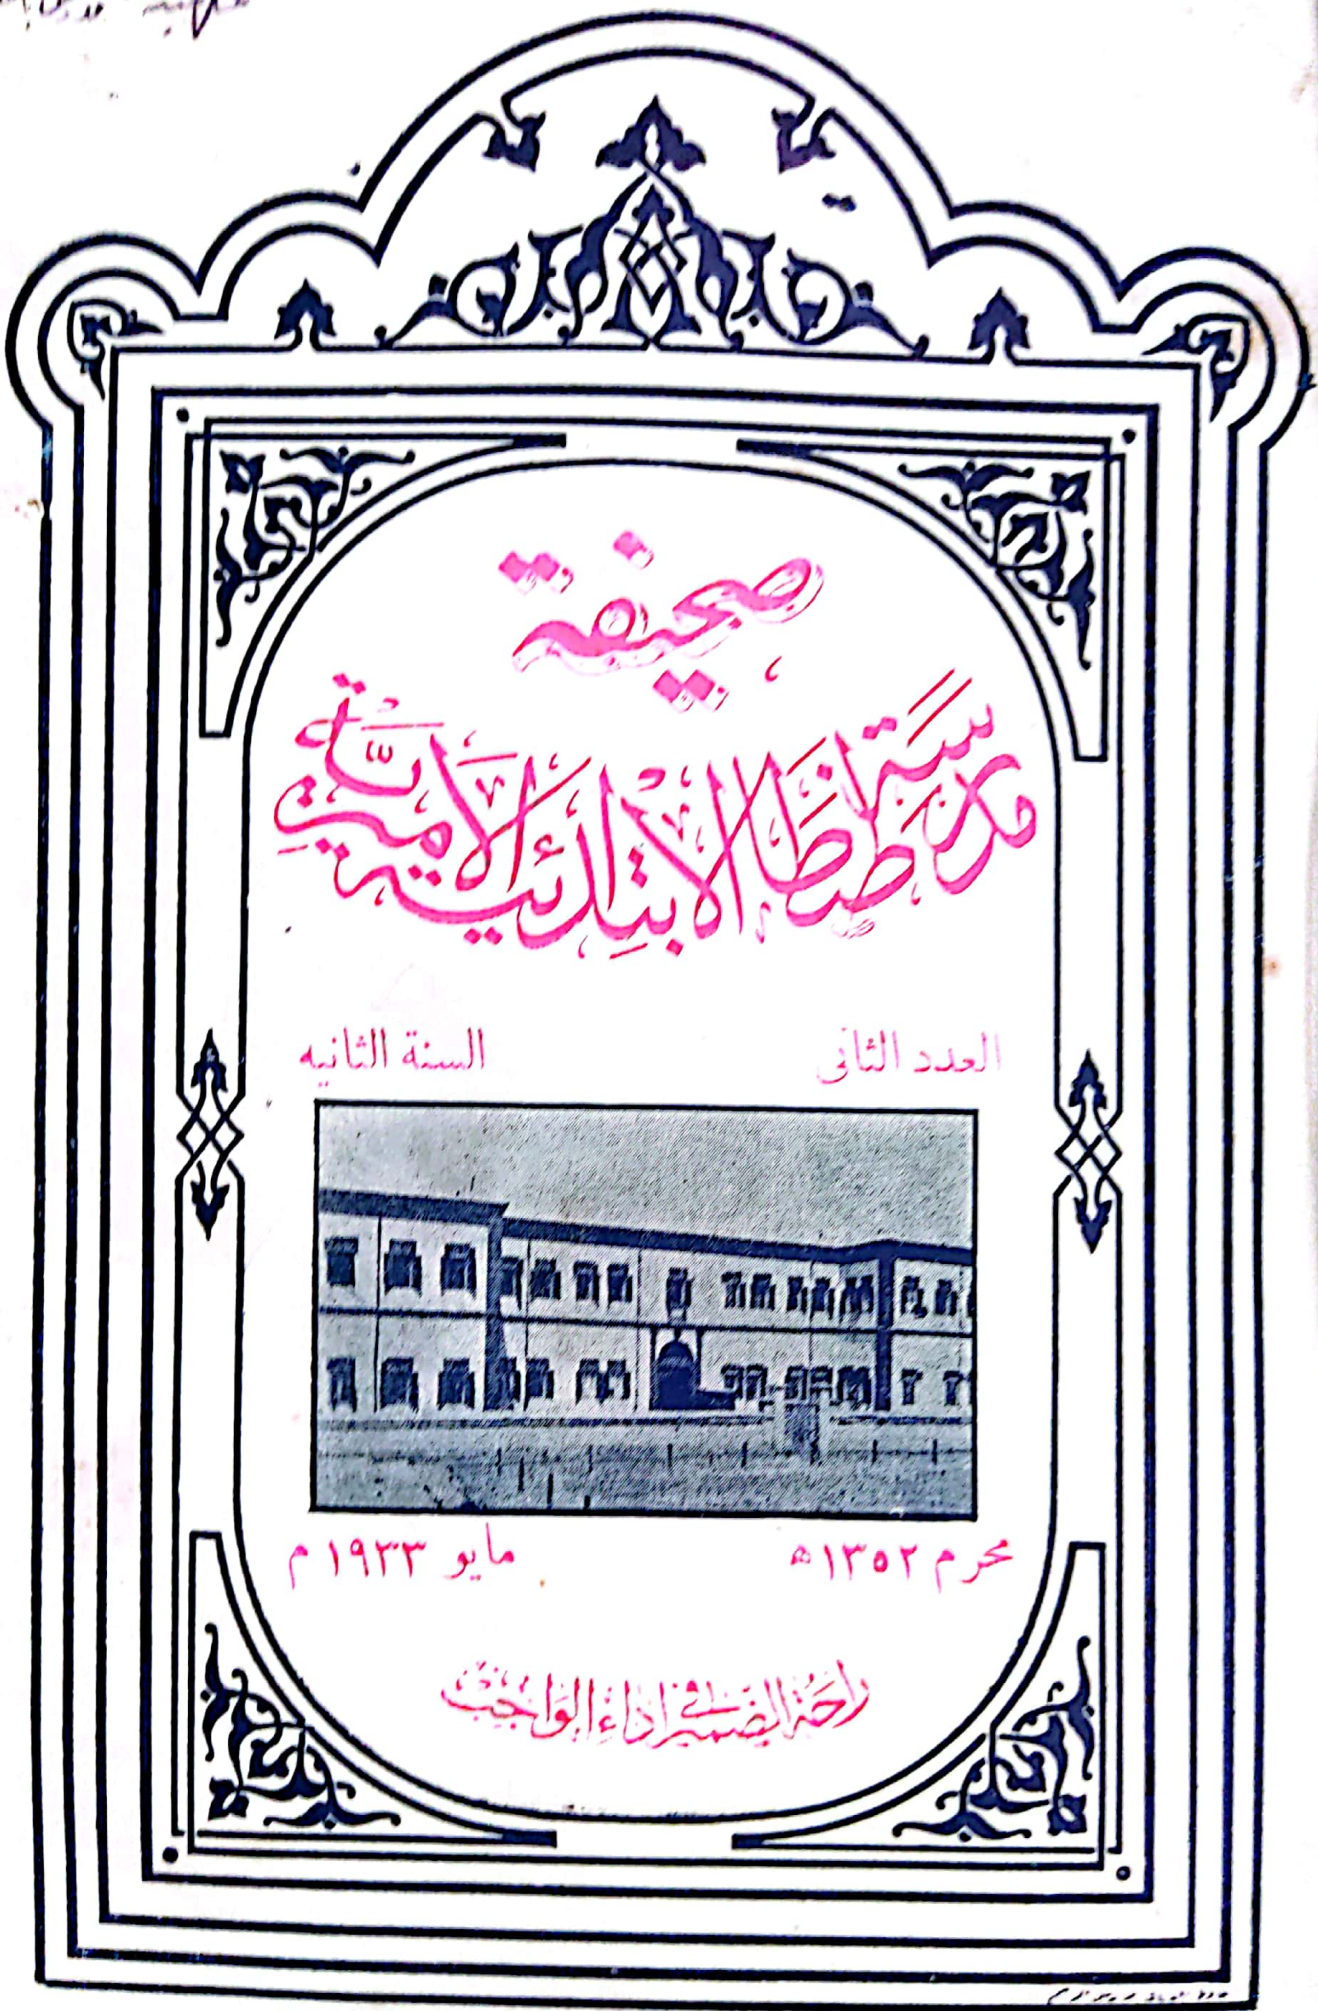 صحيفة
مدرسة طنطا الابتدائية الأميرية
العدد الثاني السنة الثانيه
محرم ١٣٥٢ ه مايو ١٩٣٣ م
راحة الضمير في اداء الواجب